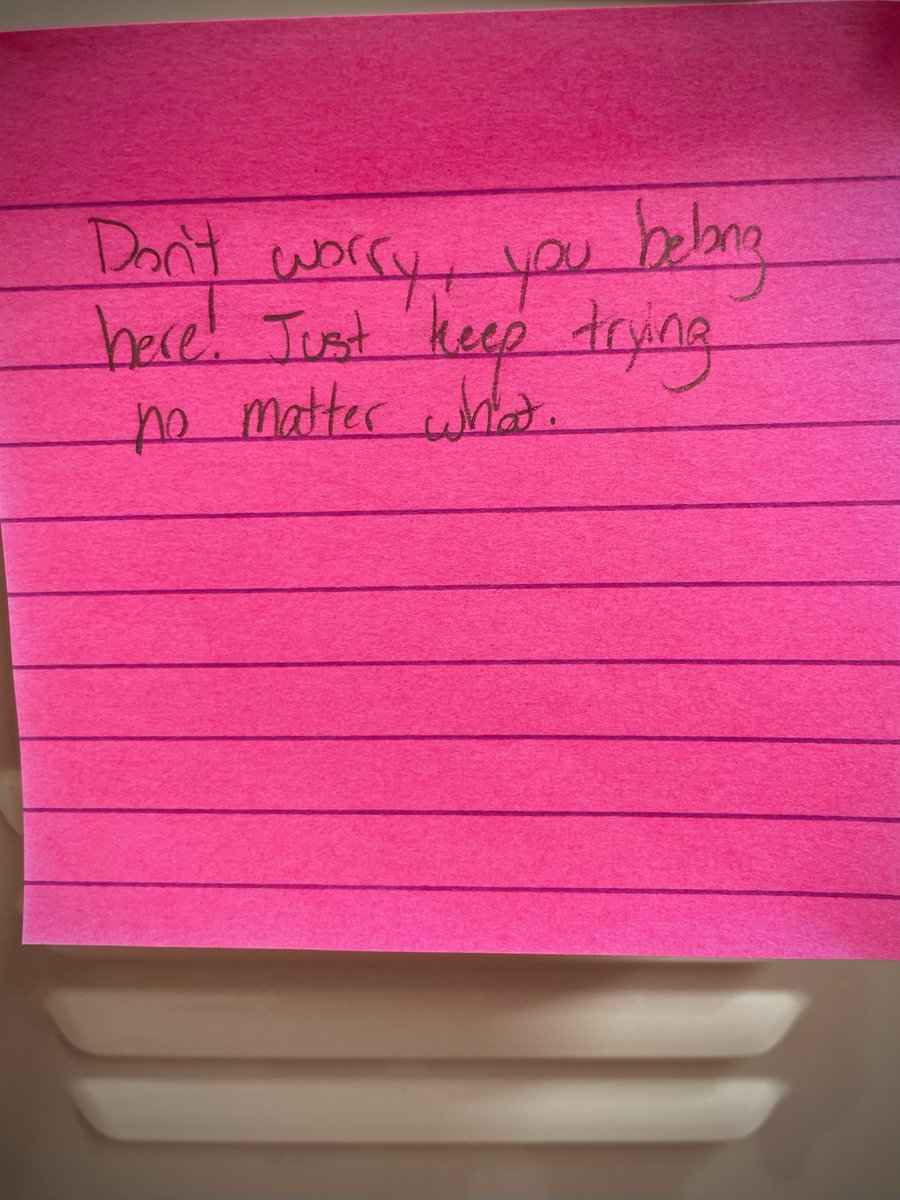 Don't worry, you belong
here! Just keep trying
no matter what.